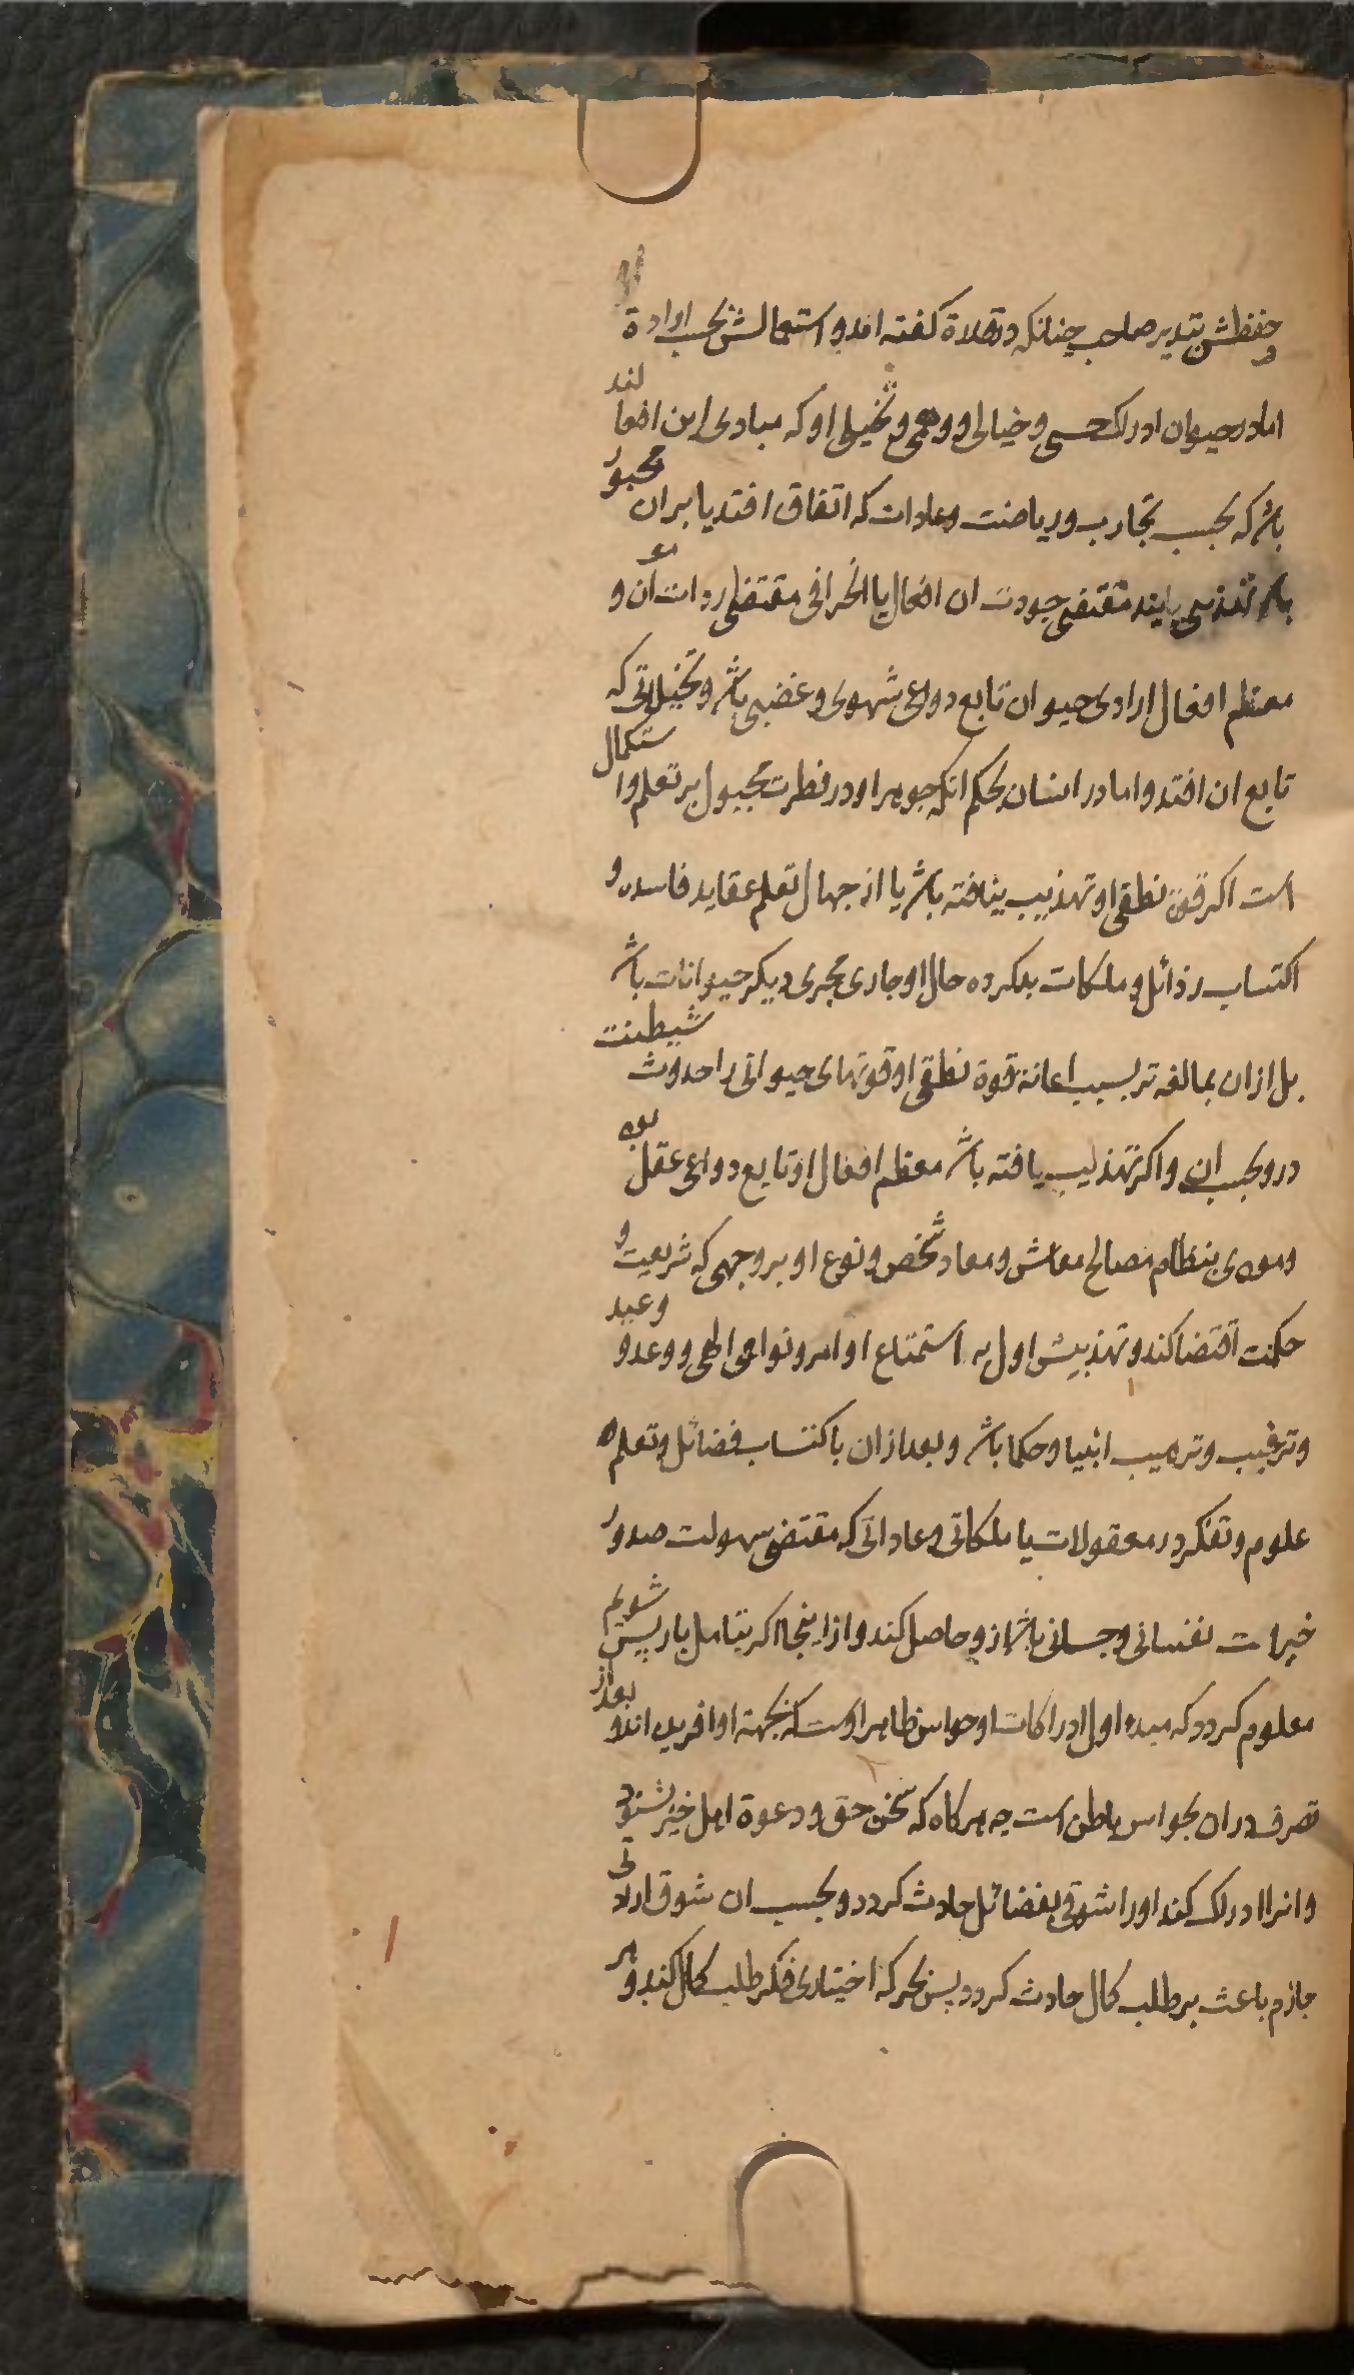 و حفظش بتدبیر صاحب چنانکه در فلاة کفته اند و استعمالش بحسب ارادة
اما در حیوان ادراک حسی و خیالی و وهمی و تخیلی او که مبادی این افعالند
باشد که بحسب تجارب و ریاضت و عادات که اتفاق افتد یا بران مجبور
باشد یابند مقتضی جودت ان افعال یا انحرافی مقتضی رداءت آن و
معظم افعال ارادی حیوان تابع دواعی شهوی و غضبی باشد و تخیلاتی که
تابع ان افتد و اما در انسان بحکم انکه جوهر او در فطرت مجبول بر تعلم و استکمال
است اکر قوة نطقی او تهذیب نیافته باشد یا از جهال تعلم عقاید فاسده و
اکتساب رذائل و ملکات بد کرده حال او جاری مجری دیکر حیوانات باشد
بل ازان بمبالغه تر بسبب اعانة قوة نطقی او قوتهای حیوانی را حدوث شیطنت
درو بحسب ان و اکر تهذیب یافته باشد معظم افعال او تابع دواعی عقل بود
و مودی بنظام مصالح معاش و معاد شخص و نوع او بر وجهی که شریعت و
حکمت اقتضا کند و تهذیبش اول به استمتاع اوامر و نواهی الهی و وعد و وعید
و ترغیب و ترهیب انبیا و حکما باشد و بعد ازان باکتساب فضائل و تعلم
علوم و تفکر در معقولات یا ملکاتی و عاداتی که مقتضی سهولت صدور
خیرات نفسانی و جسمانی باشد ازو حاصل کند و از اینجا اکر بتامل باز پس شویم
معلوم کردد که مبدء اول ادراکات او حواس ظاهر اوست که بجهة او افریده اند و بعد از
تصرف دران بحواس باطن است چه هرکاه که سخن حق و دعوة اهل خیر بشنود
و انرا ادراک کند او را شوقی بفضائل حادث کردد و بحسب ان شوق ارادتی
جازم باعث بر طلب کمال حادث کردد پس بحرکة اختیاری فکر طلب کمال کند و هر